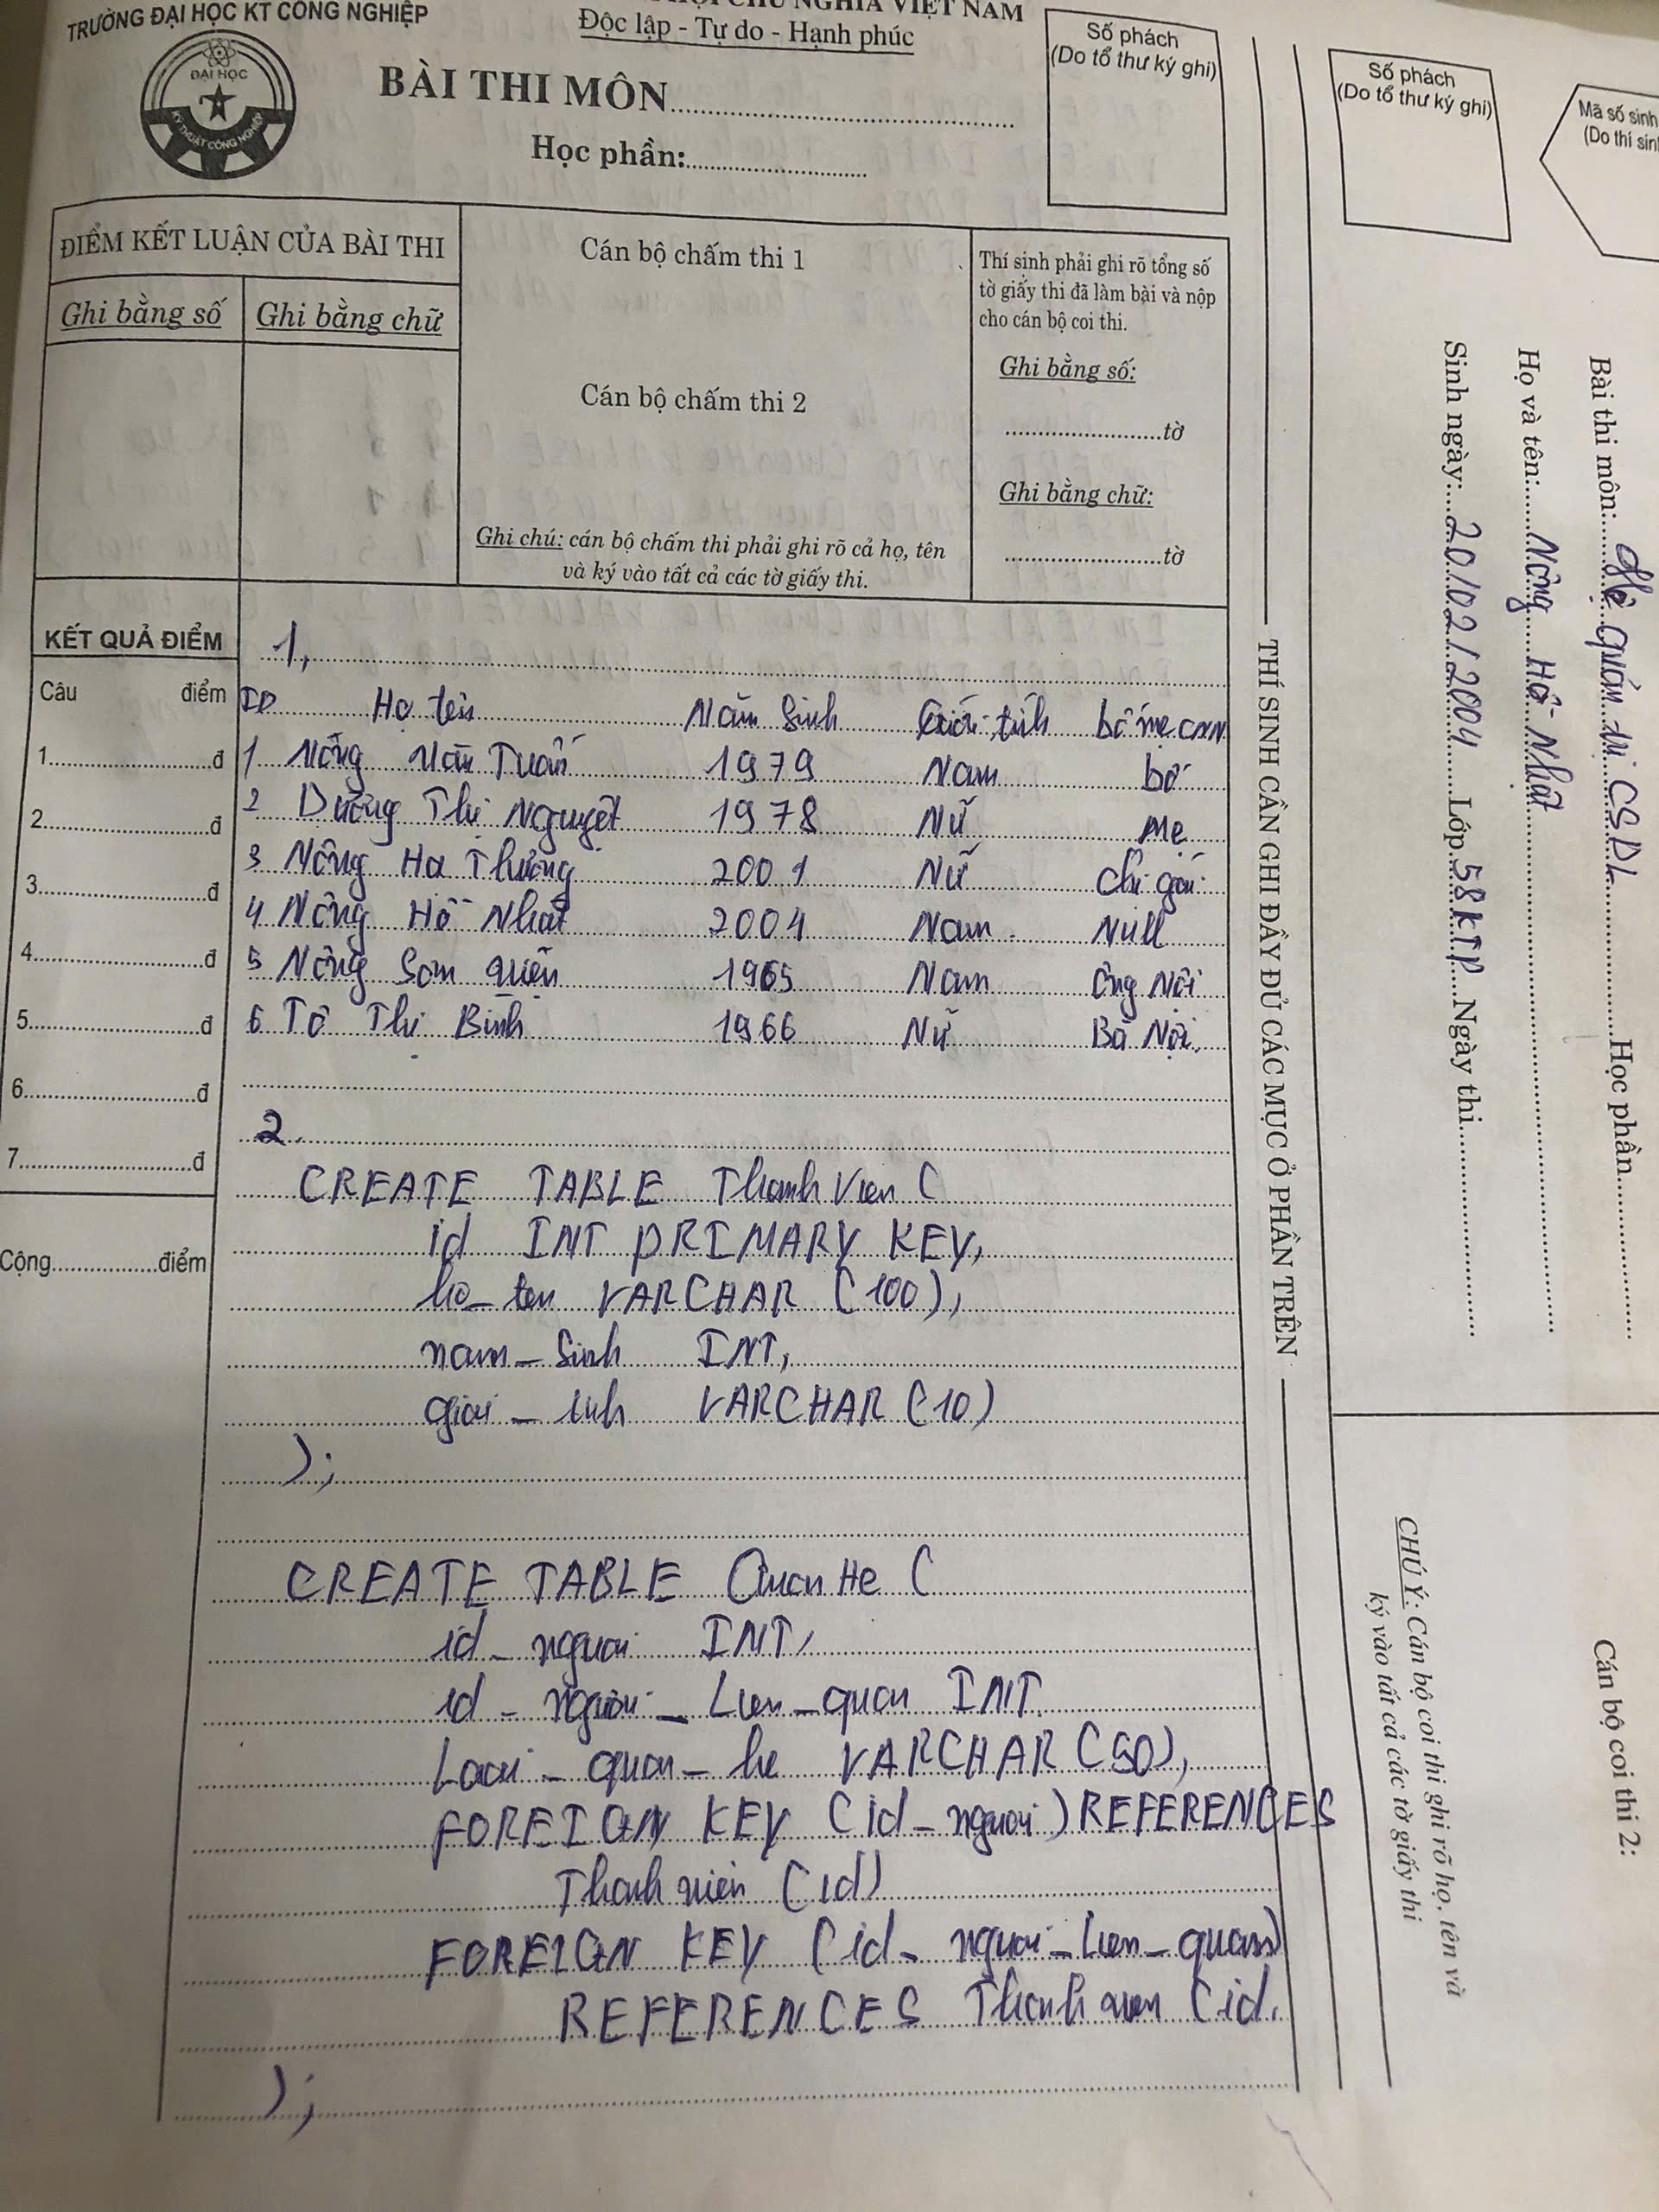 TRƯỜNG ĐẠI HỌC KT CÔNG NGHIỆP
NGHĨA VIỆT NAM
Độc lập - Tự do - Hạnh phúc
ĐẠI HỌC
KỸ THUẬT CÔNG NGHIỆP
BÀI THI MÔN
Học phần:
Số phách
(Do tổ thư ký ghi)
ĐIỂM KẾT LUẬN CỦA BÀI THI
Ghi bằng số
Ghi bằng chữ
Cán bộ chấm thi 1
Cán bộ chấm thi 2
Ghi chú: cán bộ chấm thi phải ghi rõ cả họ, tên
và ký vào tất cả các tờ giấy thi.
Thí sinh phải ghi rõ tổng số
tờ giấy thi đã làm bài và nộp
cho cán bộ coi thi.
Ghi bằng số:
tờ
Ghi bằng chữ:
tờ
KẾT QUẢ ĐIỂM
Câu điểm
1 đ
2 đ
3 đ
4 đ
5 đ
6 đ
7 đ
Cộng điểm
1,
ID Họ tên Năm Sinh Giới tính bố mẹ
1 Nông Văn Tuấn 1979 Nam bố
2 Dương Thị Nguyệt 1978 Nữ Mẹ
3 Nông Hạ Thương 2001 Nữ Chị gái
4 Nông Hồ Nhất 2004 Nam Null
5 Nông Sơn 1965 Nam Ông Nội
6 Tô Thị Bình 1966 Nữ Bà Nội.
2.
CREATE TABLE ThanhVien (
id INT PRIMARY KEY,
ho_ten VARCHAR (100),
nam_Sinh INT,
gioi_tinh VARCHAR (10)
);
CREATE TABLE QuanHe (
id_nguoi INT,
id_nguoi_Lien_quan INT
Loai_quan_he VARCHAR (50),
FOREIGN KEY (id_nguoi) REFERENCES
Thanhvien (id)
FOREIGN KEY (id_nguoi_Lien_quan)
REFERENCES Thanhvien (id.
);
THÍ SINH CẦN GHI ĐẦY ĐỦ CÁC MỤC Ở PHẦN TRÊN
Số phách
(Do tổ thư ký ghi)
Mã số sinh
(Do thí sinh
Bài thi môn: Hệ quản trị CSDL Học phần
Họ và tên: Nông Hồ Nhất
Sinh ngày: 20/02/2004 Lớp 58KTP Ngày thi
CHÚ Ý: Cán bộ coi thi ghi rõ họ, tên và
ký vào tất cả các tờ giấy thi
Cán bộ coi thi 2: